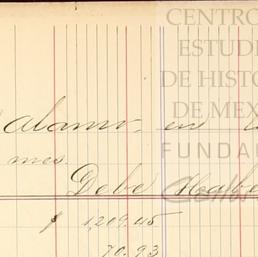 CENTRO
ESTUDI
DE HISTO
DE MEX
FUNDA
alamo, en
mes.
Debe Habe
$ 1,209.45
70.93